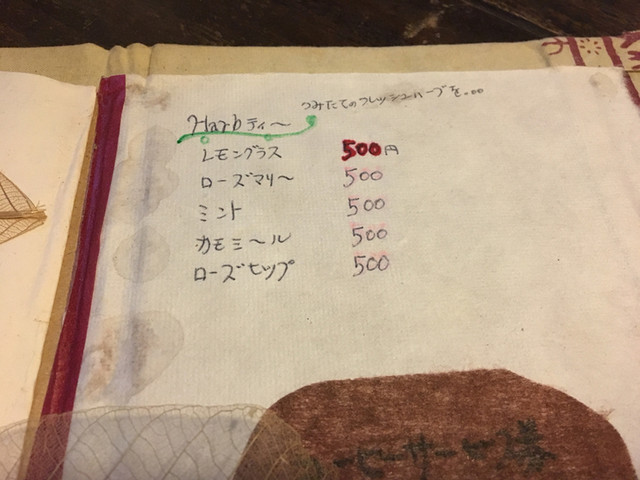 つみたてのフレッシュハーブを。。。
Harbティー
レモングラス 500円
ローズマリー 500
ミント 500
カモミール 500
ローズヒップ 500